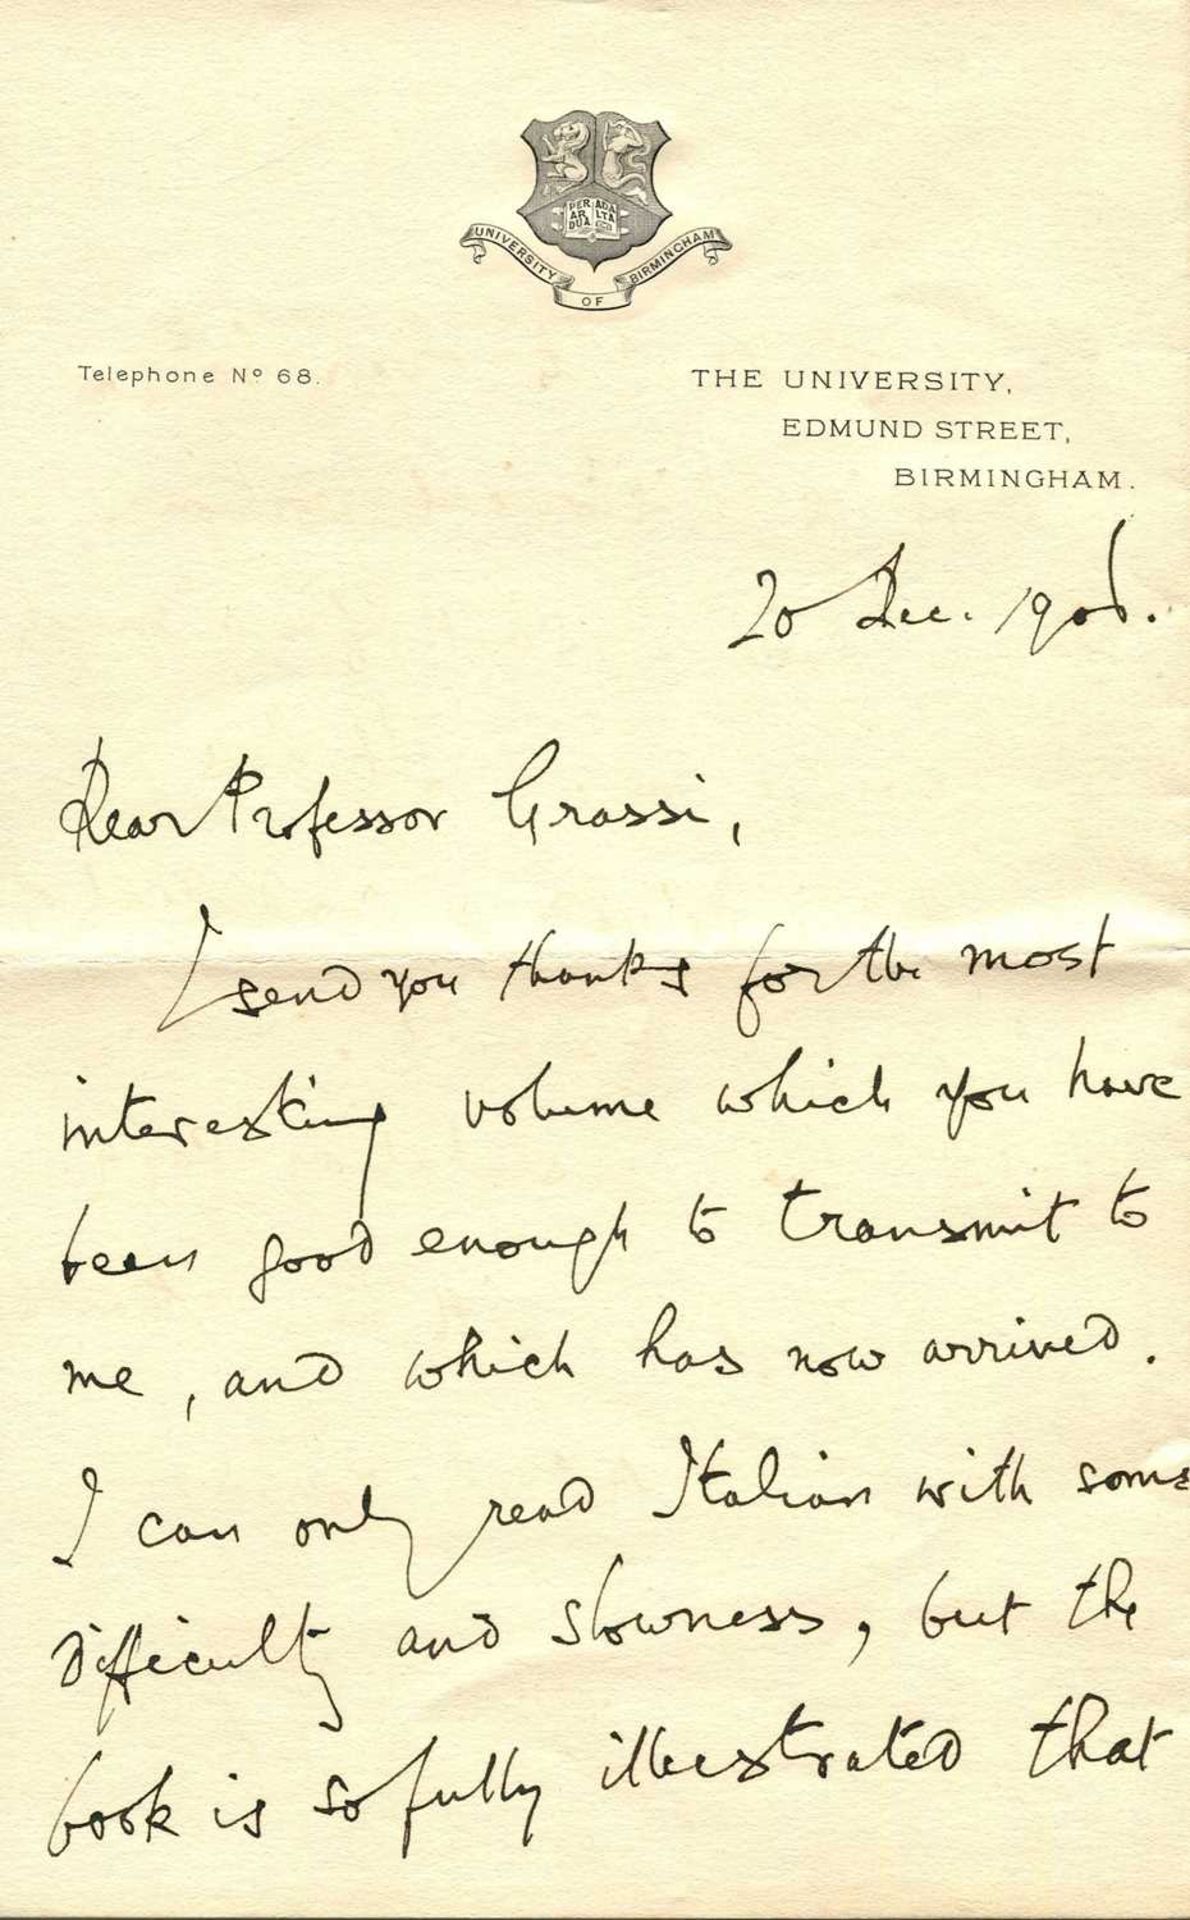 PER ADA
AR LTA
DUA
UNIVERSITY OF BIRMINGHAM
Telephone Nº 68.
THE UNIVERSITY,
EDMUND STREET,
BIRMINGHAM.
20 Dec. 1906.
Dear Professor Grassi,
I send you thanks for the most
interesting volume which you have
been good enough to transmit to
me, and which has now arrived.
I can only read Italian with some
difficulty and slowness, but the
book is so fully illustrated that